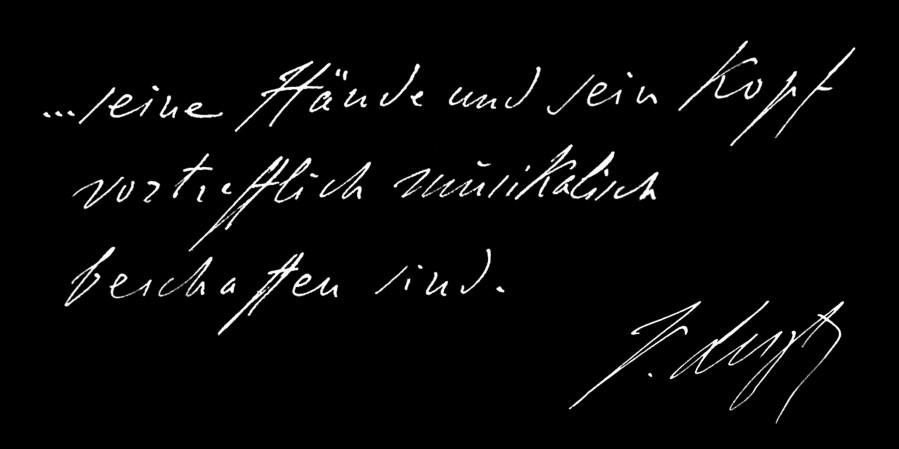 ...seine Hände und sein Kopf
vortrefflich musikalisch
beschaffen sind.